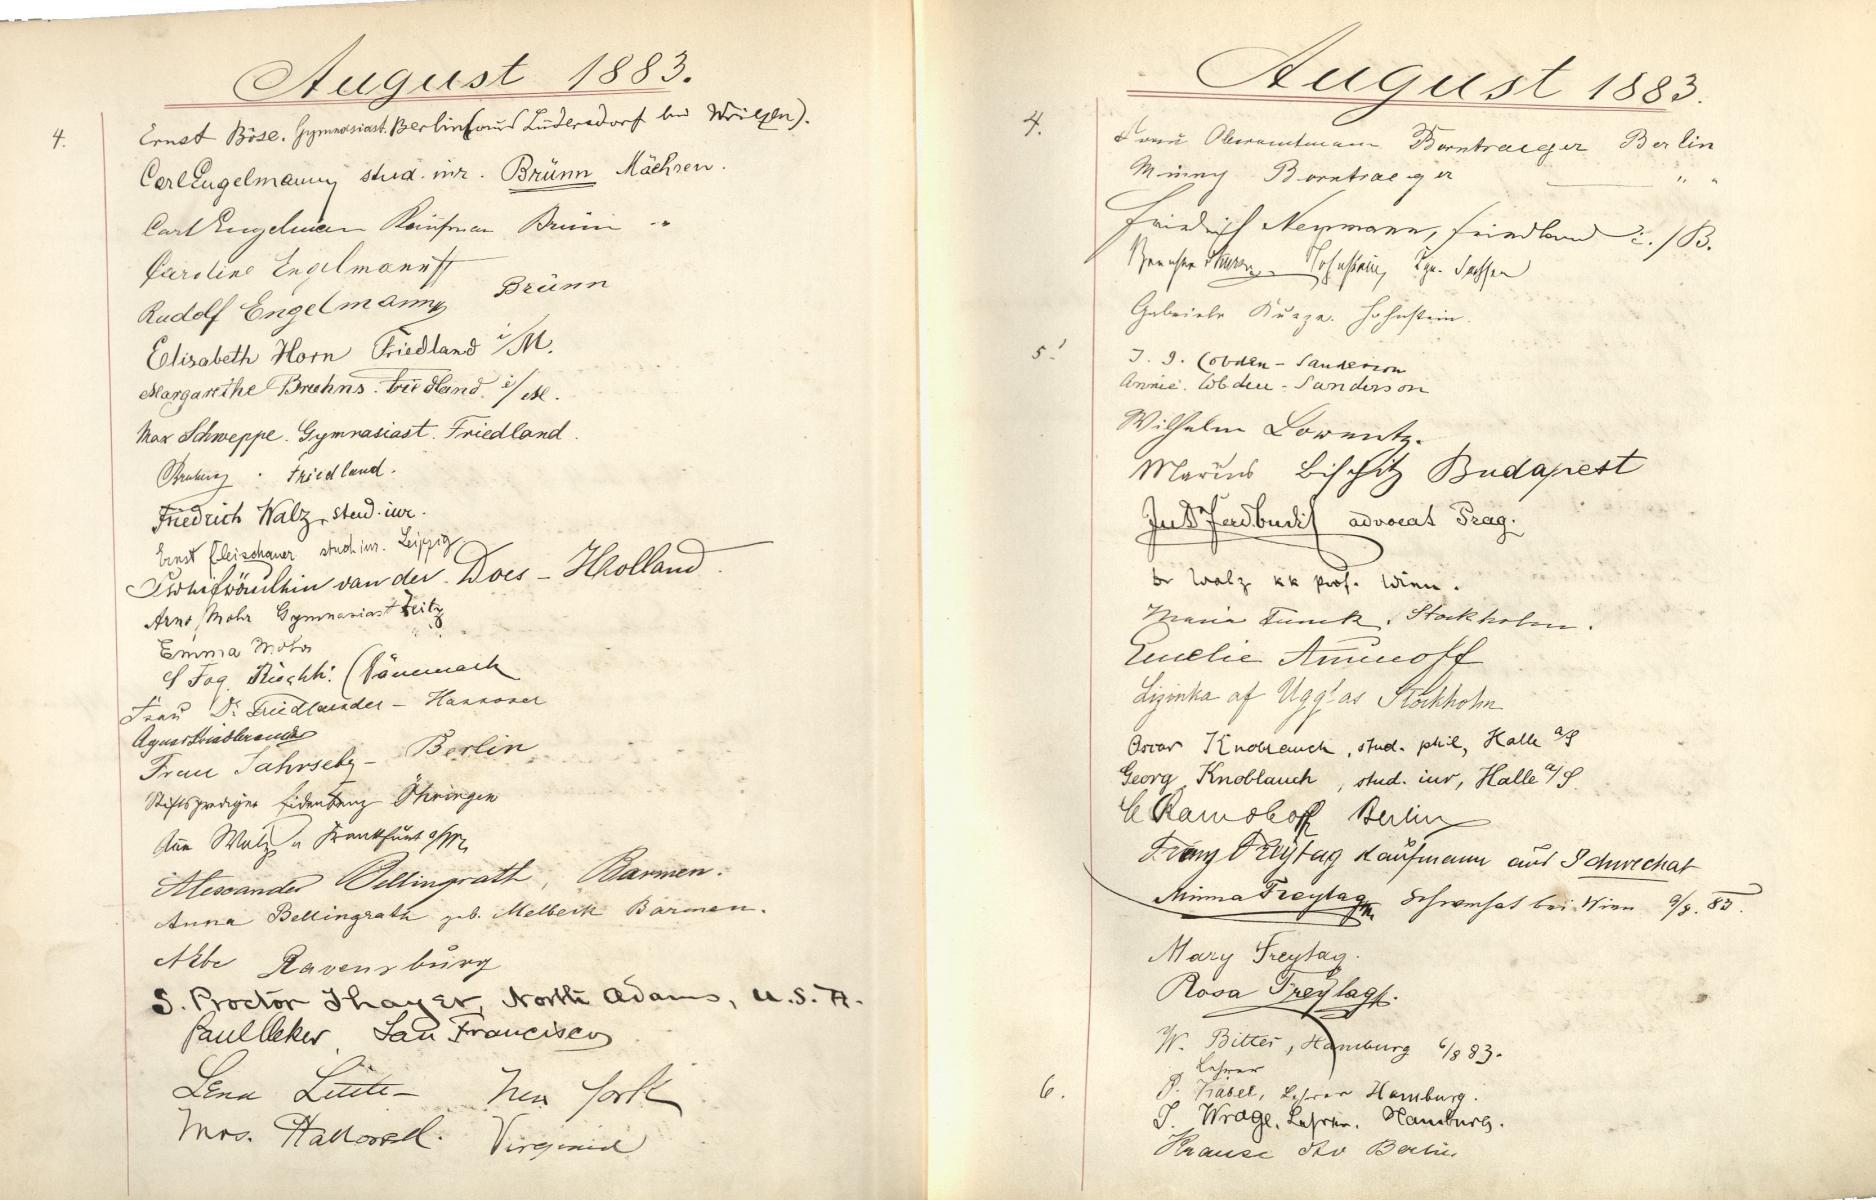 August 1883.
4.
Ernst Böse. Gymnasiast. Berlin (aus Lüdersdorf bei Wriezen).
Carl Engelmann stud. iur. Brünn Mäehren.
Carl Engelman Kaufman Brünn "
Caroline Engelmann
Rudolf Engelmann Brünn
Elisabeth Horn Friedland i/M.
Margarethe Bruhns. Friedland. i/M.
Max Schweppe. Gymnasiast. Friedland.
Friedland.
Friedrich Walz, stud. iur.
Ernst Fleischauer stud. iur. Leipzig
van der Does - Holland.
Arno Mohr Gymnasiast Zeitz
Emma Mohr
(Dänemark
Frau Dr. Friedlaender - Hannover
Agnes Friedlaender
Frau - Berlin
Stiftsprediger Eidenbenz Öhringen
Walz Frankfurt a/M
Alexander Bellingrath, Barmen.
Anna Bellingrath geb. Melbeck Barmen.
Ravensburg
S. Proctor Thayer, North Adams, U.S.A.
Paul Oeker, San Francisco
Lena Little - New York
Mrs. Hallowell. Virginia
August 1883.
4.
Frau Oberamtmann Borntraeger Berlin
Minny Borntraeger " "
Friedrich Neumann, Friedland i./B.
Hohnstein, Kgr. Sachsen
Gabriele Kunze. Hohnstein.
5.
T. J. Cobden-Sanderson
Annie. Cobden-Sanderson
Wilhelm Lowentz.
Marius Bischitz Budapest
advocat Prag.
Dr Walz kk prof. Wien.
Maria Funck, Stockholm.
Emelie Aminoff
Lizinka af Ugglas Stockholm
Oscar Knoblauch, stud. phil, Halle a/S
Georg Knoblauch, stud. iur, Halle a/S.
C Ramdohr Berlin
Franz Freytag Kaufmann aus Schwechat
Minna Freytag Schwechat bei Wien 9/8. 83.
Mary Freytag.
Rosa Freytag.
W. Bitter, Hamburg 6/8 83.
Lehrer
6.
P. Kabel, Lehrer Hamburg.
J. Wrage, Lehrer. Hamburg.
Krause Berlin